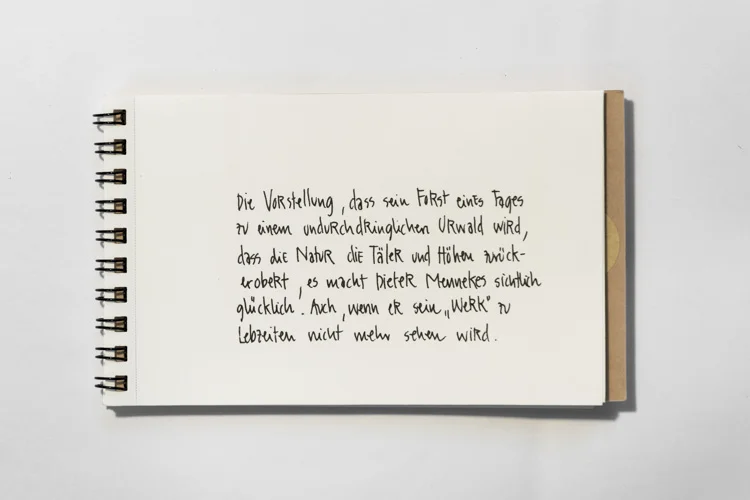 Die Vorstellung, dass sein Forst eines Tages
zu einem undurchdringlichen Urwald wird,
dass die Natur die Täler und Höhen zurück-
erobert, es macht Dieter Mennekes sichtlich
glücklich. Auch, wenn er sein „Werk“ zu
Lebzeiten nicht mehr sehen wird.